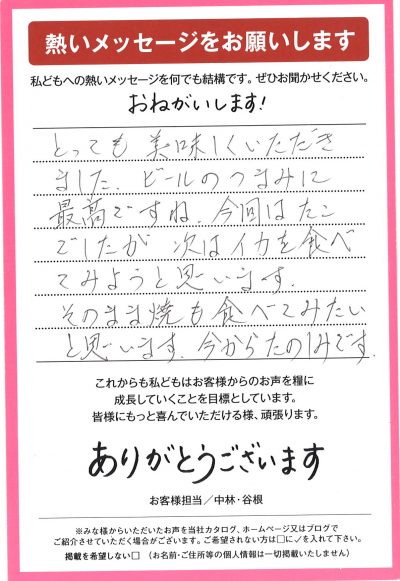 熱いメッセージをお願いします
私どもへの熱いメッセージを何でも結構です。ぜひお聞かせください。
おねがいします!
とっても美味しくいただき
ました。ビールのつまみに
最高ですね。今回はたこ
でしたが次はイカを食べ
てみようと思います。
そのまま焼も食べてみたい
と思います。今からたのしみです。
これからも私どもはお客様からのお声を糧に
成長していくことを目標としています。
皆様にもっと喜んでいただける様、頑張ります。
ありがとうございます
お客様担当/中林・谷根
※みな様からいただいたお声を当社カタログ、ホームページ又はブログで
ご紹介させていただく場合がございます。ご希望されない方は□に✓を入れて下さい。
掲載を希望しない□ (お名前・ご住所等の個人情報は一切掲載いたしません)